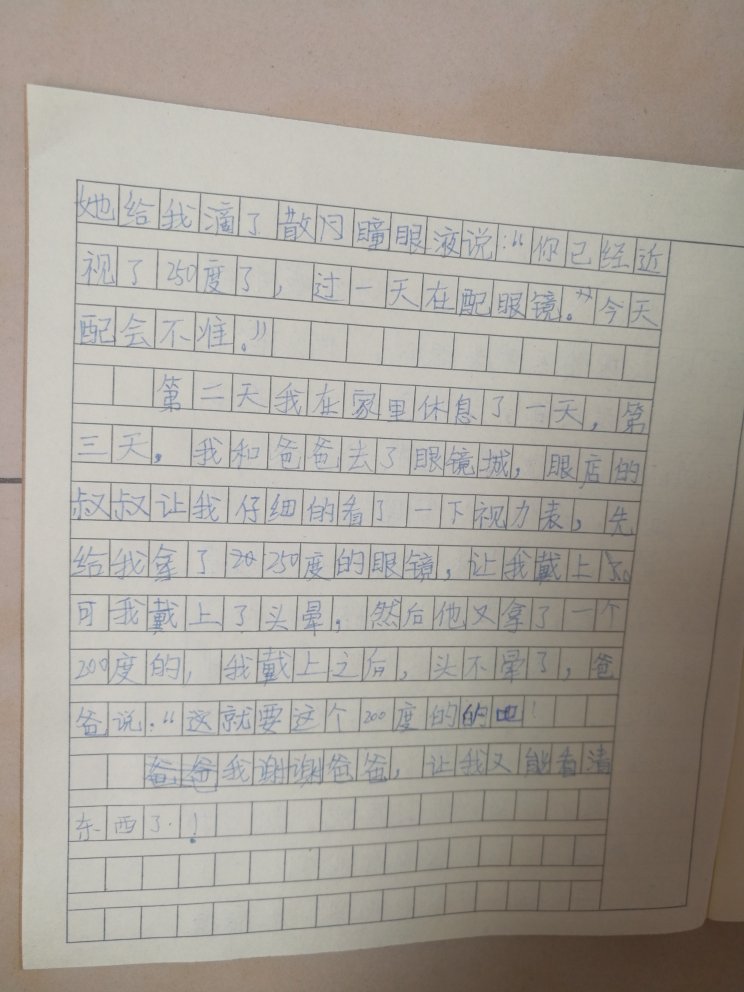 她给我滴了散闪瞳眼液说：“你已经近
视了250度了，过一天在配眼镜。”今天
配会不准。”
第二天我在家里休息了一天，第
三天，我和爸爸去了眼镜城，眼店的
叔叔让我仔细的看了一下视力表，先
给我拿了20 250度的眼镜，让我戴上
可我戴上了头晕，然后他又拿了一个
200度的，我戴上之后，头不晕了，爸
爸说：“这就要这个200度的的吧！
爸爸我谢谢爸爸，让我又能看清
东西了.！